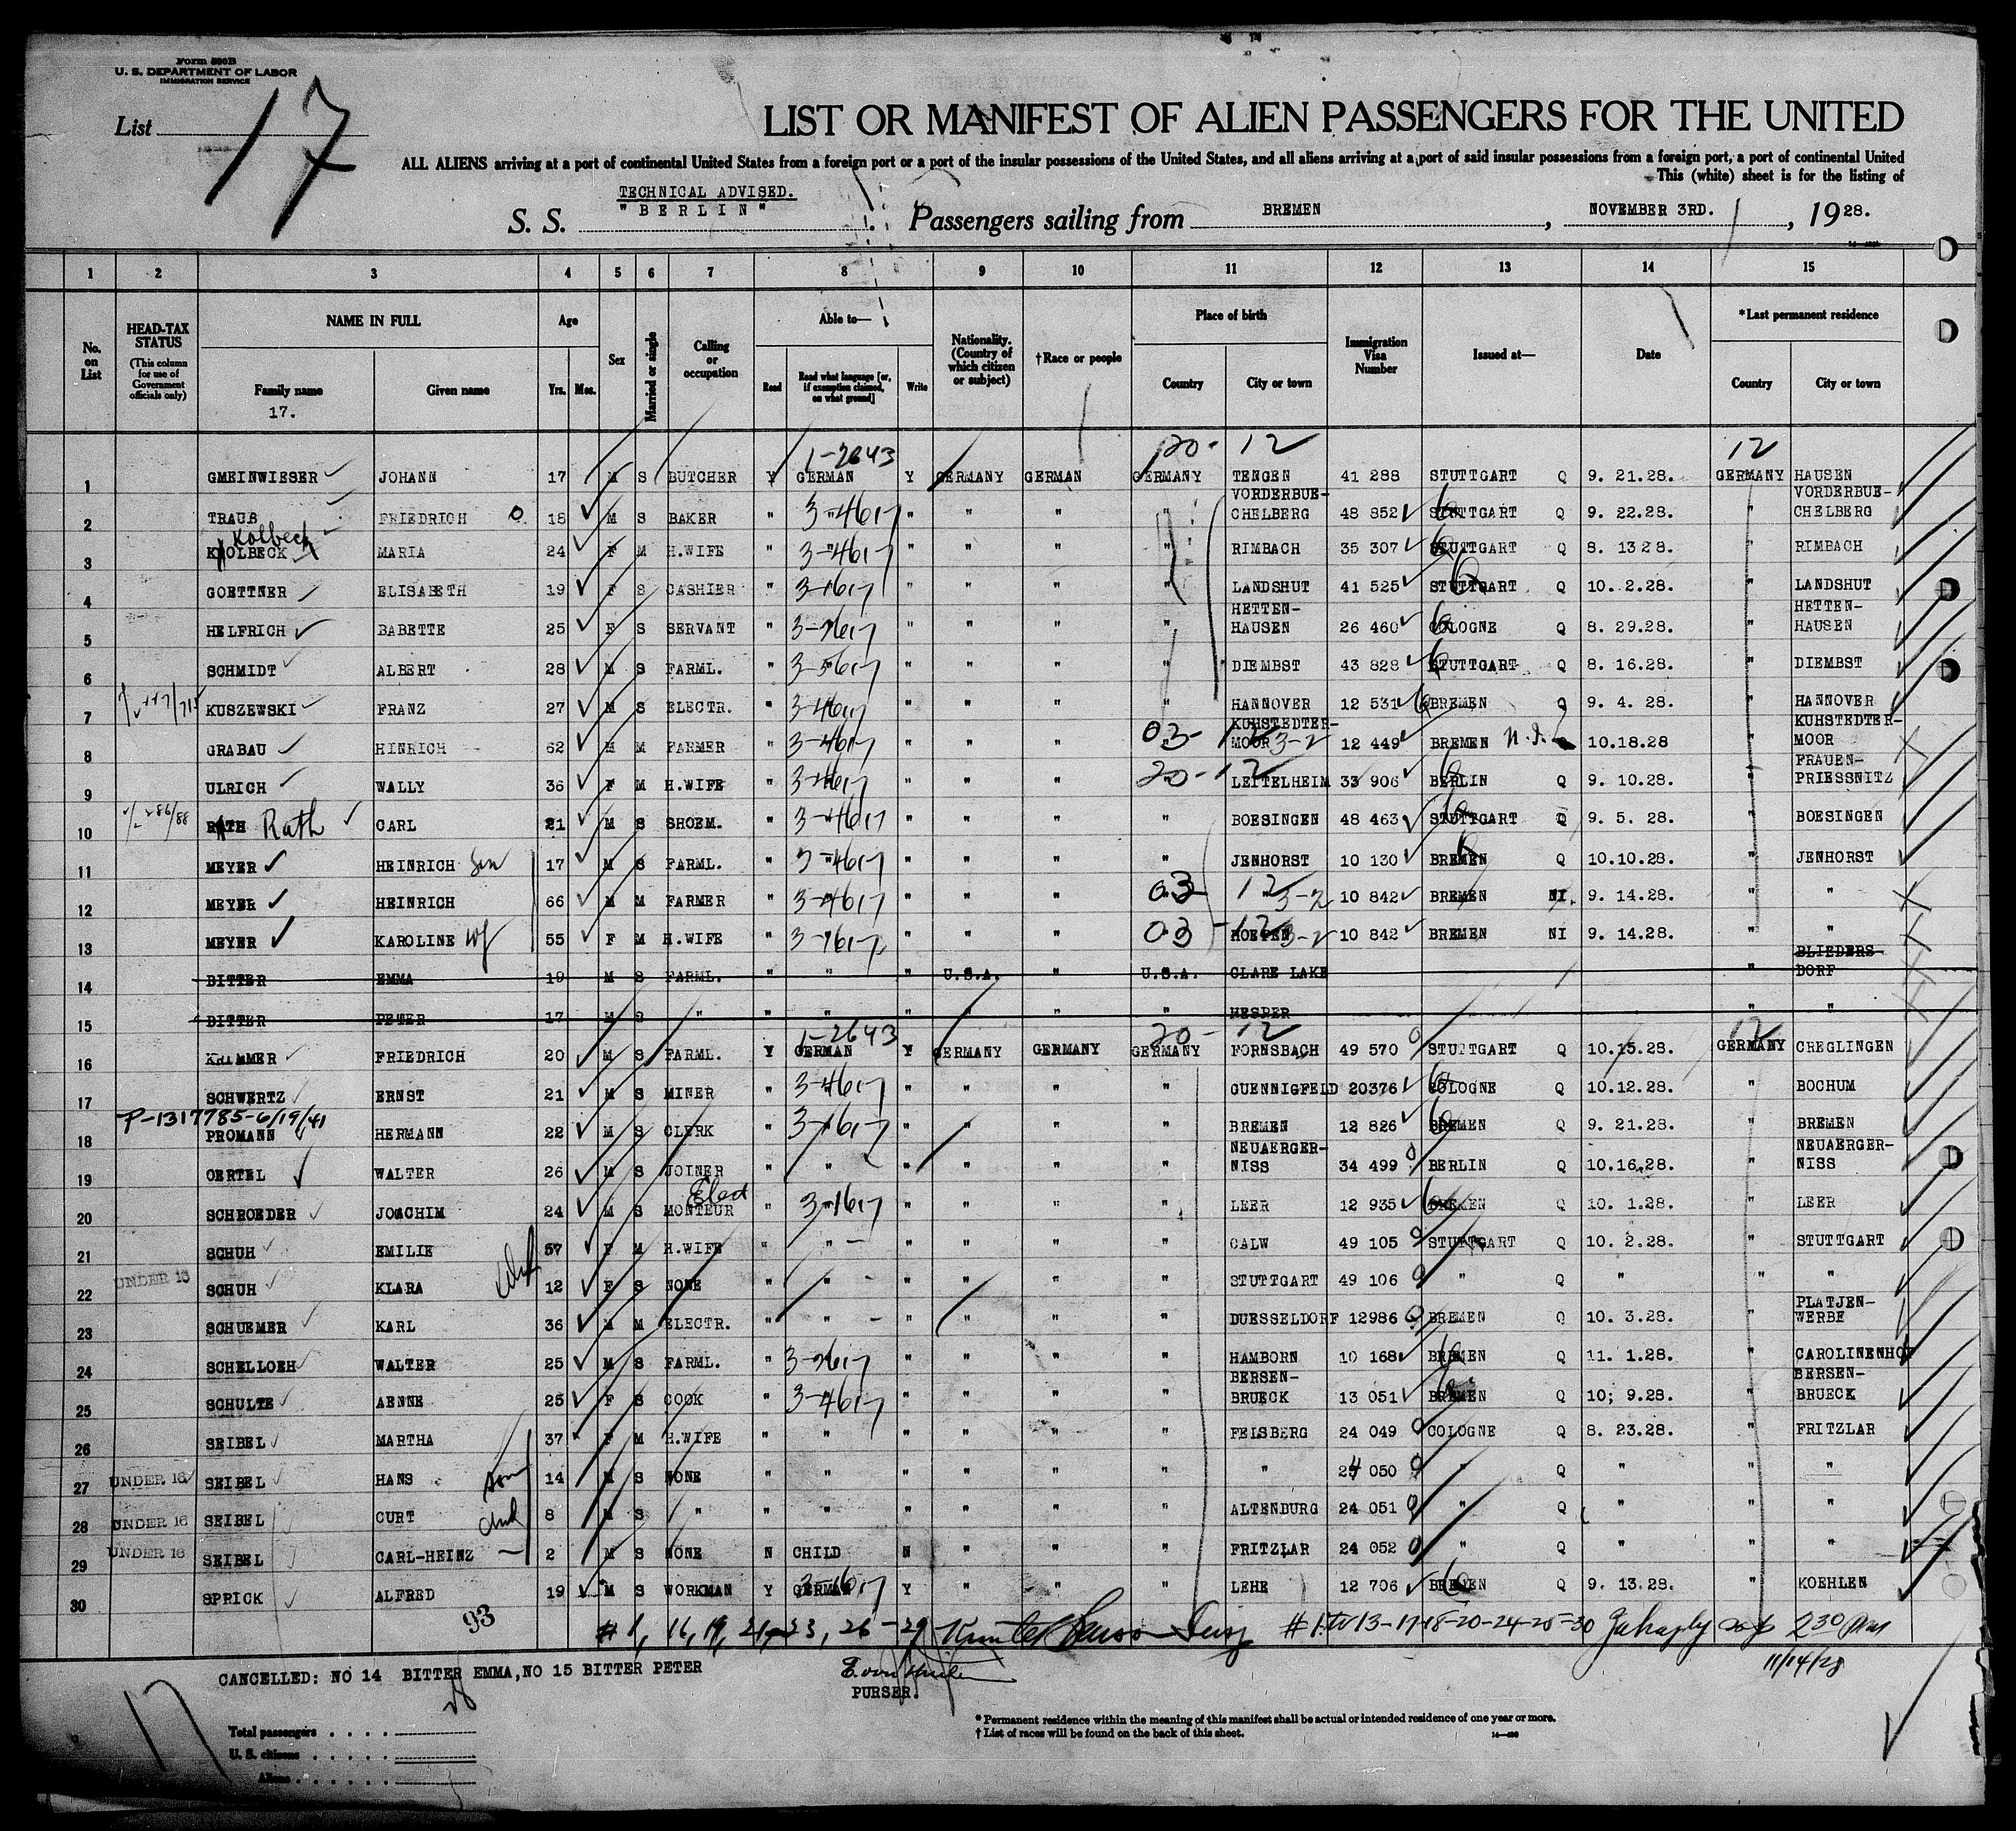 Form 500B
U. S. DEPARTMENT OF LABOR
IMMIGRATION SERVICE
List 17
LIST OR MANIFEST OF ALIEN PASSENGERS FOR THE UNITED
ALL ALIENS arriving at a port of continental United States from a foreign port or a port of the insular possessions of the United States, and all aliens arriving at a port of said insular possessions from a foreign port, a port of continental United
This (white) sheet is for the listing of
TECHNICAL ADVISED.
S. S. "BERLIN" Passengers sailing from BREMEN, NOVEMBER 3RD., 1928.
1 2 3 4 5 6 7 8 9 10 11 12 13 14 15
No. on List
HEAD-TAX STATUS
(This column for use of Government officials only)
NAME IN FULL
Family name
17.
Given name
Age
Yrs. Mos.
Sex
Married or single
Calling or occupation
Able to—
Read
Read what language [or, if exemption claimed, on what ground]
Write
Nationality. (Country of which citizen or subject)
†Race or people
Place of birth
Country
City or town
Immigration Visa Number
Issued at—
Date
*Last permanent residence
Country
City or town
1-2643 20- 12 12
1 GMEINWIESER JOHANN 17 M S BUTCHER Y GERMAN Y GERMANY GERMAN GERMANY TENGEN 41 288 STUTTGART Q 9. 21.28. GERMANY HAUSEN
2 TRAUB FRIEDRICH 18 M S BAKER " 3-4617 " " " " VORDERBUE-CHELBERG 48 852 STUTTGART Q 9. 22.28. " VORDERBUE-CHELBERG
Kolbeck
3 KROLBECK MARIA 24 F M H.WIFE " 3-4617 " " " " RIMBACH 35 307 STUTTGART Q 8. 13 28. " RIMBACH
4 GOETTNER ELISABETH 19 F S CASHIER " 3-1617 " " " " LANDSHUT 41 525 STUTTGART Q 10. 2.28. " LANDSHUT
5 HELFRICH BABETTE 25 F S SERVANT " 3-7617 " " " " HETTEN-HAUSEN 26 460 COLOGNE Q 8. 29.28. " HETTEN-HAUSEN
6 SCHMIDT ALBERT 28 M S FARML. " 3-5617 " " " " DIEMBST 43 828 STUTTGART Q 8. 16.28. " DIEMBST
7 KUSZEWSKI FRANZ 27 M S ELECTR. " 3-4617 " " " " HANNOVER 12 531 BREMEN Q 9. 4. 28. " HANNOVER
8 GRABAU HINRICH 62 M M FARMER " 3-4617 " " " 03- KUHSTEDTER-MOOR 12 3-2 12 449 BREMEN N.I. 10.18.28 " KUHSTEDTER-MOOR
9 ULRICH WALLY 36 F M H.WIFE " 3-4617 " " " 20-12 LEITELHEIM 33 906 BERLIN Q 9. 10.28. " FRAUEN-PRIESSNITZ
10 RATH Rath CARL 21 M S SHOEM. " 3-4617 " " " " BOESINGEN 48 463 STUTTGART Q 9. 5. 28. " BOESINGEN
11 MEYER HEINRICH Son 17 M S FARML. " 3-4617 " " " " JENHORST 10 130 BREMEN Q 10.10.28. " JENHORST
12 MEYER HEINRICH 66 M M FARMER " 3-4617 " " " 03 12 3-2 10 842 BREMEN NI. 9. 14.28. " "
13 MEYER KAROLINE Wf 55 F M H.WIFE " 3-7617 " " " 03-12 3-2 10 842 BREMEN NI 9. 14.28. " "
14 BITTER EMMA 19 M S FARML. " " " U.S.A. " U.S.A. CLARE LAKE " BLIEDERS-DORF
15 BITTER PETER 17 M S " " " " " " " HESPER " "
1-2643 20- 12 12
16 KRIMMER FRIEDRICH 20 M S FARML. Y GERMAN Y GERMANY GERMANY GERMANY FORNSBACH 49 570 STUTTGART Q 10.15.28. GERMANY CREGLINGEN
17 SCHWERTZ ERNST 21 M S MINER " 3-4617 " " " " GUENNIGFELD 20376 COLOGNE Q 10.12.28. " BOCHUM
P-1317785-6/19/41
18 PROMANN HERMANN 22 M S CLERK " 3-1617 " " " " BREMEN 12 826 BREMEN Q 9. 21.28. " BREMEN
19 OERTEL WALTER 26 M S JOINER " " " " " " NEUAERGER-NISS 34 499 BERLIN Q 10.16.28. " NEUAERGER-NISS
Elect
20 SCHROEDER JOACHIM 24 M S MONTEUR " 3-1617 " " " " LEER 12 935 BREMEN Q 10. 1.28. " LEER
21 SCHUH EMILIE 57 F M H.WIFE " " " " " " CALW 49 105 STUTTGART Q 10. 2.28. " STUTTGART
22 UNDER 16 SCHUH KLARA 12 F S NONE " " " " " " STUTTGART 49 106 " Q " " "
23 SCHUEMER KARL 36 M M ELECTR. " " " " " " DUESSELDORF 12986 BREMEN Q 10. 3.28. " PLATJEN-WERBE
24 SCHELLOEH WALTER 25 M S FARML. " 3-2617 " " " " HAMBORN 10 168 BREMEN Q 11. 1.28. " CAROLINENHOF
25 SCHULTE AENNE 25 F S COOK " 3-4617 " " " " BERSEN-BRUECK 13 051 BREMEN Q 10; 9.28. " BERSEN-BRUECK
26 SEIBEL MARTHA 37 F M H.WIFE " " " " " " FELSBERG 24 049 COLOGNE Q 8. 23.28. " FRITZLAR
27 UNDER 16 SEIBEL HANS son 14 M S NONE " " " " " " " 24 050 " Q " " "
28 UNDER 16 SEIBEL CURT 8 M S " " " " " " " ALTENBURG 24 051 " Q " " "
29 UNDER 16 SEIBEL CARL-HEINZ 2 M S NONE N CHILD N " " " FRITZLAR 24 052 " Q " " "
30 SPRICK ALFRED 19 M S WORKMAN Y GERMAN 3-1617 Y " " " LEHE 12 706 BREMEN Q 9. 13.28. " KOEHLEN
93 #1, 16, 19, 21-23, 26-29 #1 to 13-17-18-20-24-25-30 2 30 PM
11/14/28
CANCELLED: NO 14 BITTER EMMA, NO 15 BITTER PETER
PURSER.
17
Total passengers
U. S. citizens
Aliens
* Permanent residence within the meaning of this manifest shall be actual or intended residence of one year or more.
† List of races will be found on the back of this sheet.